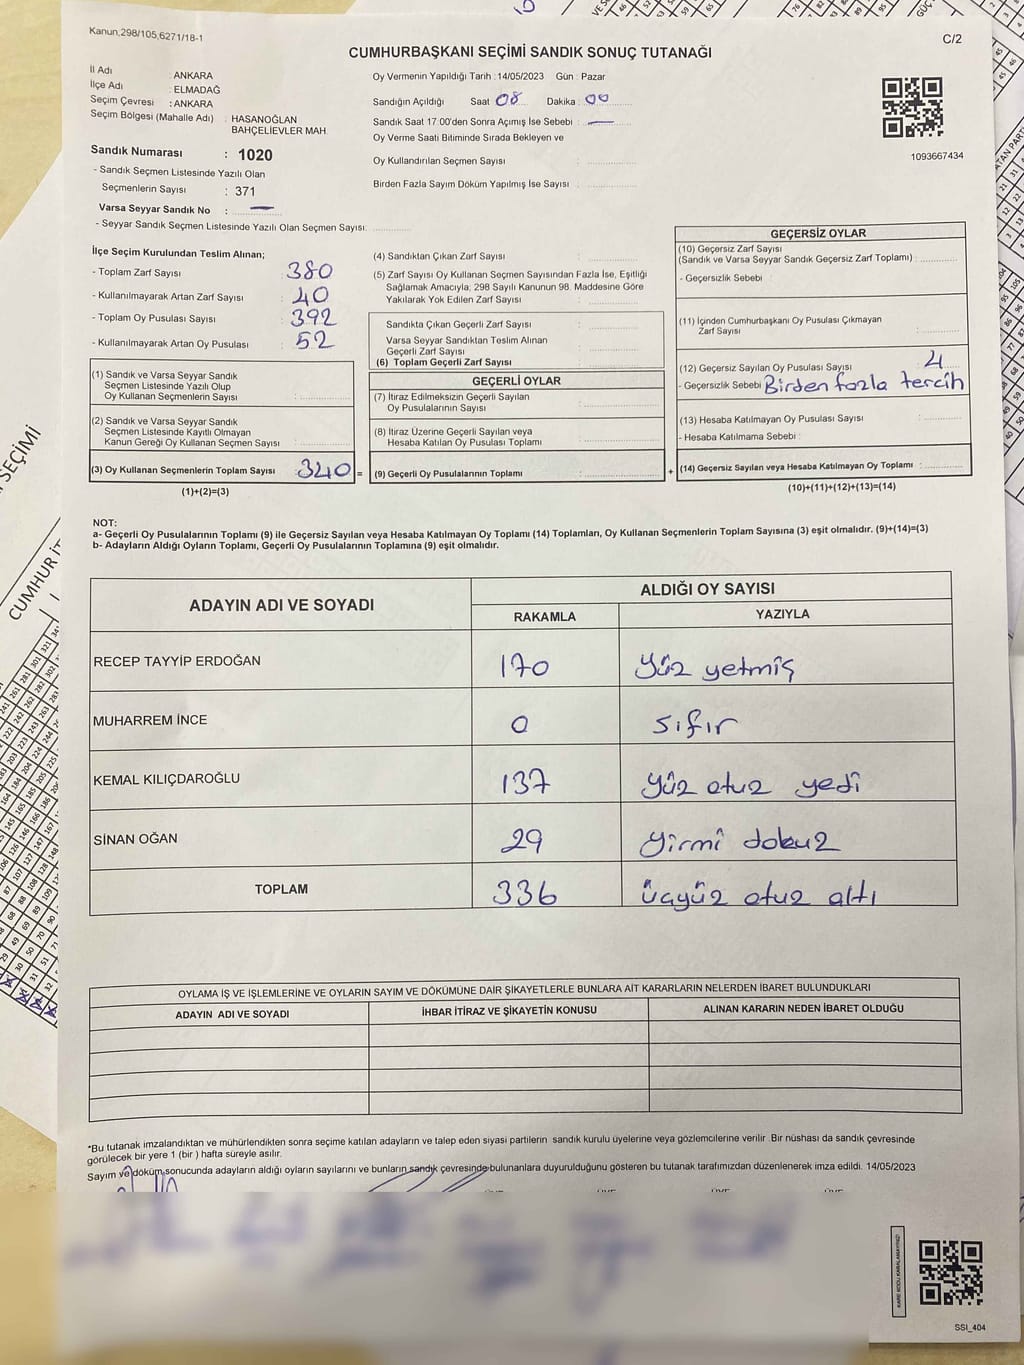 Kanun,298/105,6271/18-1
C/2
CUMHURBAŞKANI SEÇİMİ SANDIK SONUÇ TUTANAĞI
İl Adı : ANKARA
İlçe Adı : ELMADAĞ
Seçim Çevresi : ANKARA
Seçim Bölgesi (Mahalle Adı) : HASANOĞLAN
BAHÇELİEVLER MAH.
Sandık Numarası : 1020
- Sandık Seçmen Listesinde Yazılı Olan
Seçmenlerin Sayısı : 371
Varsa Seyyar Sandık No : —
- Seyyar Sandık Seçmen Listesinde Yazılı Olan Seçmen Sayısı:
Oy Vermenin Yapıldığı Tarih :14/05/2023 Gün : Pazar
Sandığın Açıldığı Saat 08 Dakika : 00
Sandık Saat 17:00'den Sonra Açımış İse Sebebi : —
Oy Verme Saati Bitiminde Sırada Bekleyen ve
Oy Kullandırılan Seçmen Sayısı :
Birden Fazla Sayım Döküm Yapılmış İse Sayısı :
1093667434
İlçe Seçim Kurulundan Teslim Alınan;
- Toplam Zarf Sayısı : 380
- Kullanılmayarak Artan Zarf Sayısı : 40
- Toplam Oy Pusulası Sayısı : 392
- Kullanılmayarak Artan Oy Pusulası : 52
(1) Sandık ve Varsa Seyyar Sandık
Seçmen Listesinde Yazılı Olup
Oy Kullanan Seçmenlerin Sayısı :
(2) Sandık ve Varsa Seyyar Sandık
Seçmen Listesinde Kayıtlı Olmayan
Kanun Gereği Oy Kullanan Seçmen Sayısı :
(3) Oy Kullanan Seçmenlerin Toplam Sayısı : 340 =
(1)+(2)=(3)
(4) Sandıktan Çıkan Zarf Sayısı :
(5) Zarf Sayısı Oy Kullanan Seçmen Sayısından Fazla İse, Eşitliği
Sağlamak Amacıyla; 298 Sayılı Kanunun 98. Maddesine Göre
Yakılarak Yok Edilen Zarf Sayısı :
Sandıkta Çıkan Geçerli Zarf Sayısı :
Varsa Seyyar Sandıktan Teslim Alınan
Geçerli Zarf Sayısı :
(6) Toplam Geçerli Zarf Sayısı :
GEÇERLİ OYLAR
(7) İtiraz Edilmeksizin Geçerli Sayılan
Oy Pusulalarının Sayısı :
(8) İtiraz Üzerine Geçerli Sayılan veya
Hesaba Katılan Oy Pusulası Toplamı :
(9) Geçerli Oy Pusulalarının Toplamı : +
GEÇERSİZ OYLAR
(10) Geçersiz Zarf Sayısı
(Sandık ve Varsa Seyyar Sandık Geçersiz Zarf Toplamı) :
- Geçersizlik Sebebi :
(11) İçinden Cumhurbaşkanı Oy Pusulası Çıkmayan
Zarf Sayısı :
(12) Geçersiz Sayılan Oy Pusulası Sayısı : 4
- Geçersizlik Sebebi Birden fazla tercih
(13) Hesaba Katılmayan Oy Pusulası Sayısı :
- Hesaba Katılmama Sebebi :
(14) Geçersiz Sayılan veya Hesaba Katılmayan Oy Toplamı :
(10)+(11)+(12)+(13)=(14)
NOT:
a- Geçerli Oy Pusulalarının Toplamı (9) ile Geçersiz Sayılan veya Hesaba Katılmayan Oy Toplamı (14) Toplamları, Oy Kullanan Seçmenlerin Toplam Sayısına (3) eşit olmalıdır. (9)+(14)=(3)
b- Adayların Aldığı Oyların Toplamı, Geçerli Oy Pusulalarının Toplamına (9) eşit olmalıdır.
ADAYIN ADI VE SOYADI ALDIĞI OY SAYISI
RAKAMLA YAZIYLA
RECEP TAYYİP ERDOĞAN 170 Yüz yetmiş
MUHARREM İNCE 0 sıfır
KEMAL KILIÇDAROĞLU 137 Yüz otuz yedi
SİNAN OĞAN 29 Yirmi dokuz
TOPLAM 336 üçyüz otuz altı
OYLAMA İŞ VE İŞLEMLERİNE VE OYLARIN SAYIM VE DÖKÜMÜNE DAİR ŞİKAYETLERLE BUNLARA AİT KARARLARIN NELERDEN İBARET BULUNDUKLARI
ADAYIN ADI VE SOYADI İHBAR İTİRAZ VE ŞİKAYETİN KONUSU ALINAN KARARIN NEDEN İBARET OLDUĞU
*Bu tutanak imzalandıktan ve mühürlendikten sonra seçime katılan adayların ve talep eden siyasi partilerin sandık kurulu üyelerine veya gözlemcilerine verilir .Bir nüshası da sandık çevresinde
görülecek bir yere 1 (bir ) hafta süreyle asılır.
Sayım ve döküm sonucunda adayların aldığı oyların sayılarını ve bunların sandık çevresinde bulunanlara duyurulduğunu gösteren bu tutanak tarafımızdan düzenlenerek imza edildi. 14/05/2023
KARE KODU KARALAMAYINIZ!
SSI_404